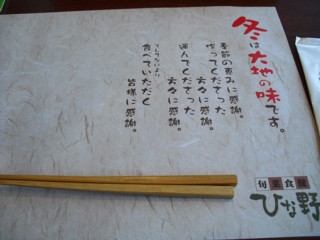 冬は大地の味です。
季節の恵みに感謝。
作ってくださった
方々に感謝。
運んでくださった
方々に感謝。
そしてなにより
食べていただく
皆様に感謝。
旬菜食健
ひな野